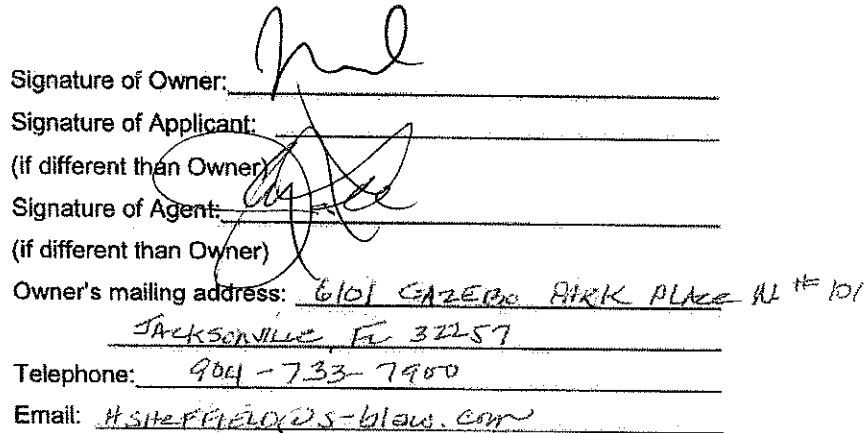 Signature of Owner:
Signature of Applicant:
(if different than Owner)
Signature of Agent:
(if different than Owner)
Owner's mailing address: 6101 GAZEBO PARK PLACE N #101
JACKSONVILLE FL 32257
Telephone: 904-733-7900
Email: HSHEFFIELD@S-blaw.com